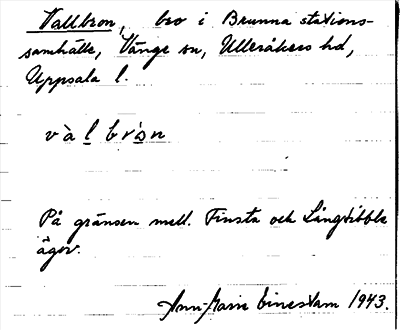 Vallbron, bro i Brunna stations-
samhälle, Vänge sn, Ulleråkers hd,
Uppsala l.
v à l brò̀n
På gränsen mell. Finsta och Långtibble
ägor.
Ann-Marie Einestam 1943.